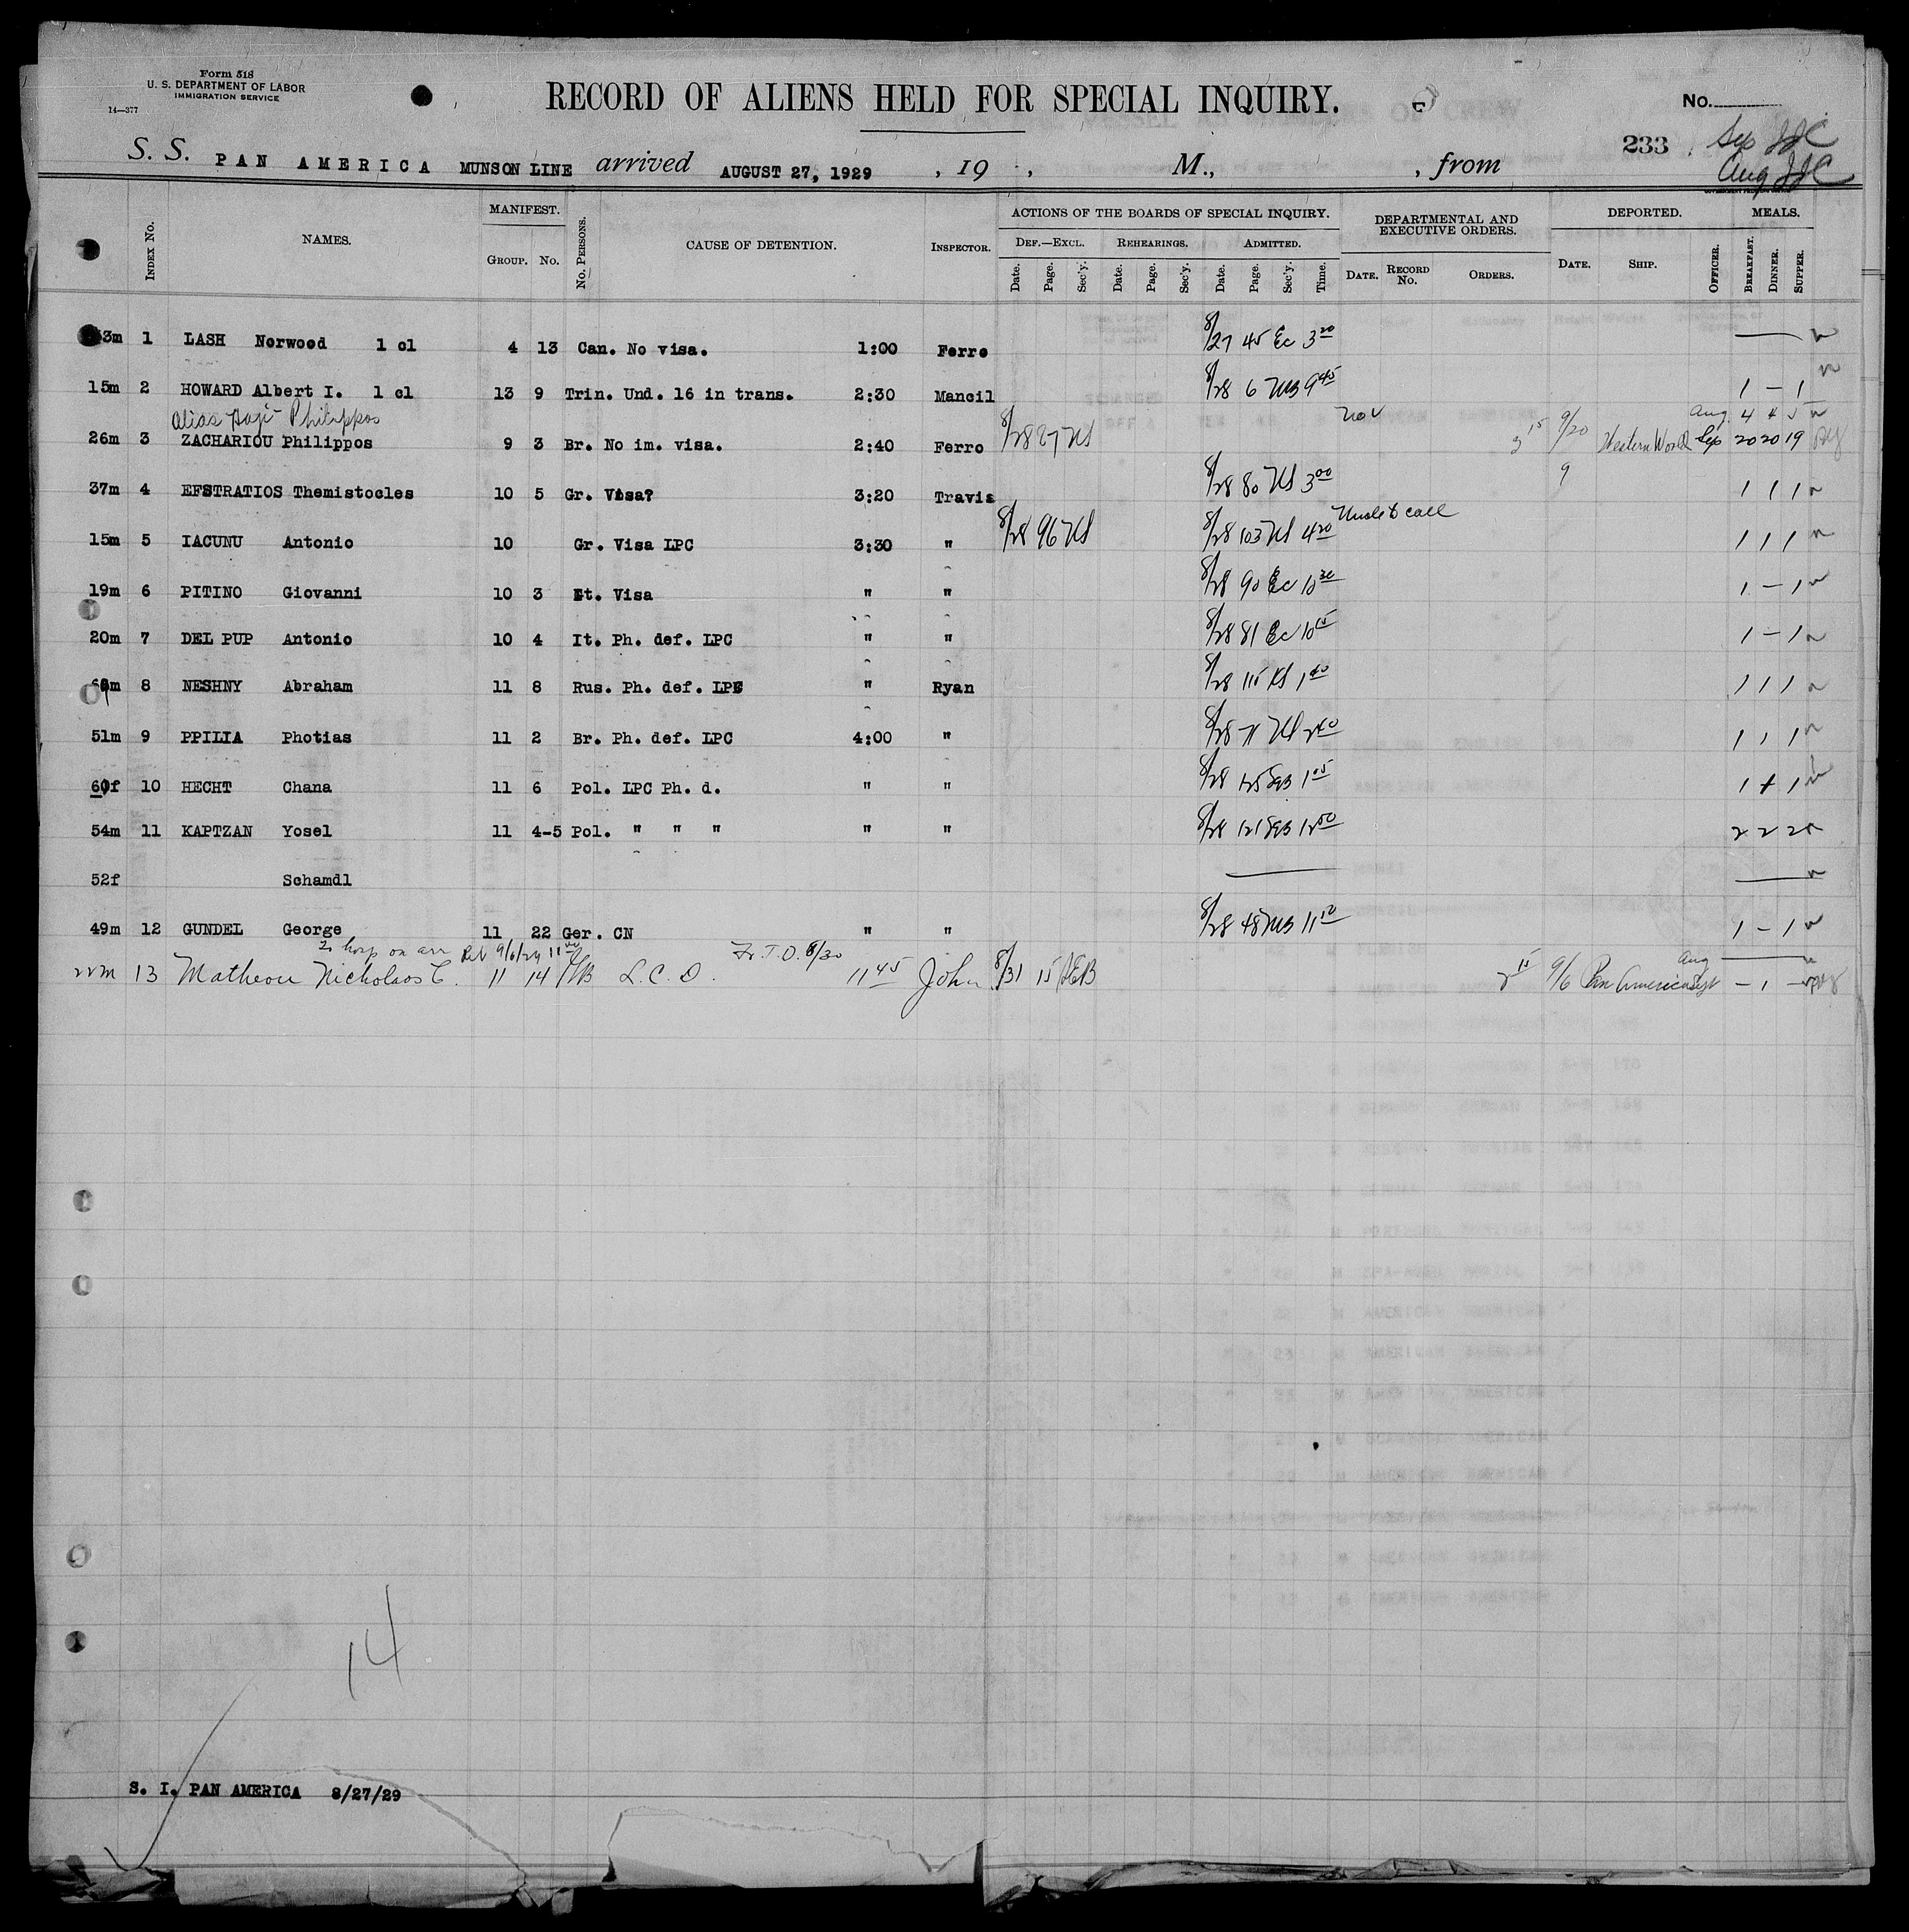 Form 518
U. S. DEPARTMENT OF LABOR
IMMIGRATION SERVICE
14—377
RECORD OF ALIENS HELD FOR SPECIAL INQUIRY.
No.
233
Sep JJC
Aug JJC
S. S. PAN AMERICA MUNSON LINE arrived AUGUST 27, 1929 , 19 , M., , from
INDEX No. NAMES. MANIFEST. GROUP. No. No. PERSONS. CAUSE OF DETENTION. INSPECTOR. ACTIONS OF THE BOARDS OF SPECIAL INQUIRY. DEF.—EXCL. REHEARINGS. ADMITTED. DEPARTMENTAL AND EXECUTIVE ORDERS. DEPORTED. MEALS.
Date. Page. Sec'y. Date. Page. Sec'y. Date. Page. Sec'y. Time. DATE. RECORD No. ORDERS. DATE. SHIP. OFFICER. BREAKFAST. DINNER. SUPPER.
3m 1 LASH Norwood 1 cl 4 13 Can. No visa. 1:00 Ferro 8/27 45 Ec 3 20
15m 2 HOWARD Albert I. 1 cl 13 9 Trin. Und. 16 in trans. 2:30 Mancil 8/28 6 MB 9 45 1 — 1
alias Philippos Aug 4 4 5
26m 3 ZACHARIOU Philippos 9 3 Br. No im. visa. 2:40 Ferro 8/28 27 3 15 9/20 Western World Sep 20 20 19
37m 4 EFSTRATIOS Themistocles 10 5 Gr. Visa? 3:20 Travis 8/28 80 3 00 9 1 1 1
15m 5 IACUNU Antonio 10 Gr. Visa LPC 3:30 " 8/28 96 8/28 103 4 20 Uncle to call 1 1 1
19m 6 PITINO Giovanni 10 3 It. Visa " " 8/28 90 Ec 10 30 1 — 1
20m 7 DEL PUP Antonio 10 4 It. Ph. def. LPC " " 8/28 81 Ec 10 15 1 — 1
8 NESHNY Abraham 11 8 Rus. Ph. def. LPC " Ryan 8/28 115 1 40 1 1 1
51m 9 PPILIA Photias 11 2 Br. Ph. def. LPC 4:00 " 8/28 71 2 40 1 1 1
60f 10 HECHT Chana 11 6 Pol. LPC Ph. d. " " 8/28 125 1 05 1 + 1
54m 11 KAPTZAN Yosel 11 4-5 Pol. " " " " " 8/28 121 12 50 2 2 2
52f Schamdl
49m 12 GUNDEL George 11 22 Ger. CN " " 8/28 48 MB 11 10 1 — 1
To hosp on arr Ret 9/6/29 Fr. T. D. 8/30 Aug
22m 13 Matheou Nicholaos C. 11 14 L. C. D. 11 45 John 8/31 15 AEB 2 15 9/6 Pan America Sept — 1 —
14
S. I. PAN AMERICA 8/27/29